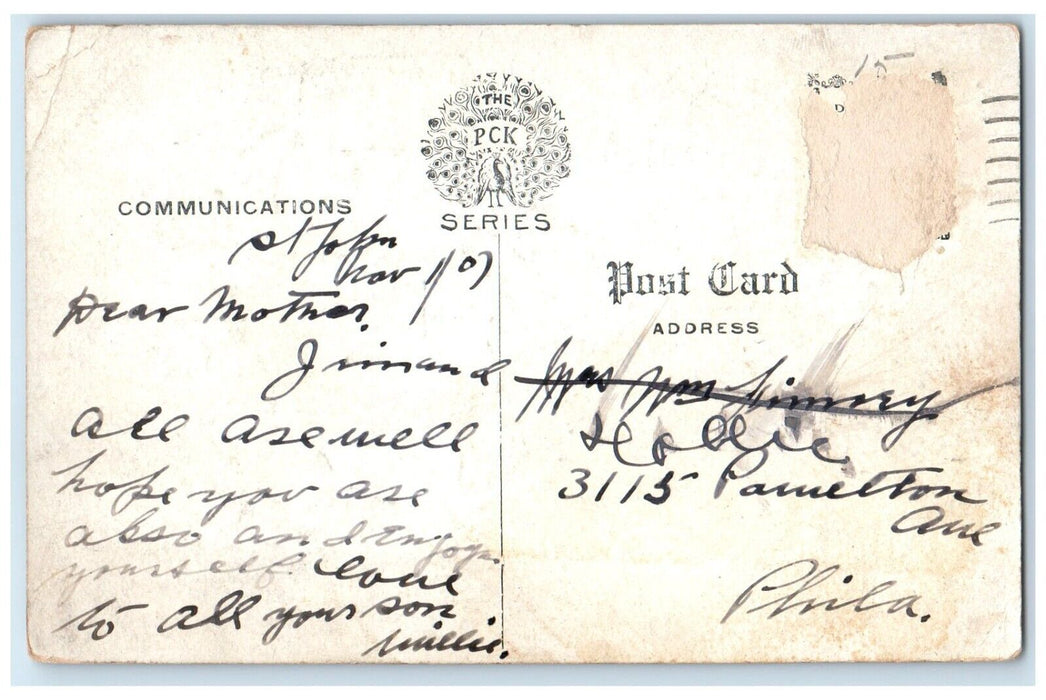 15
THE
PCK
SERIES
COMMUNICATIONS
St John
Nov 1/07
Dear Mother.
Jim and
all are well
hope you are
also and Enjoy
yourself. love
to all your son
Willie.
Post Card
ADDRESS
Mrs Wm
3115
Ave
Phila.